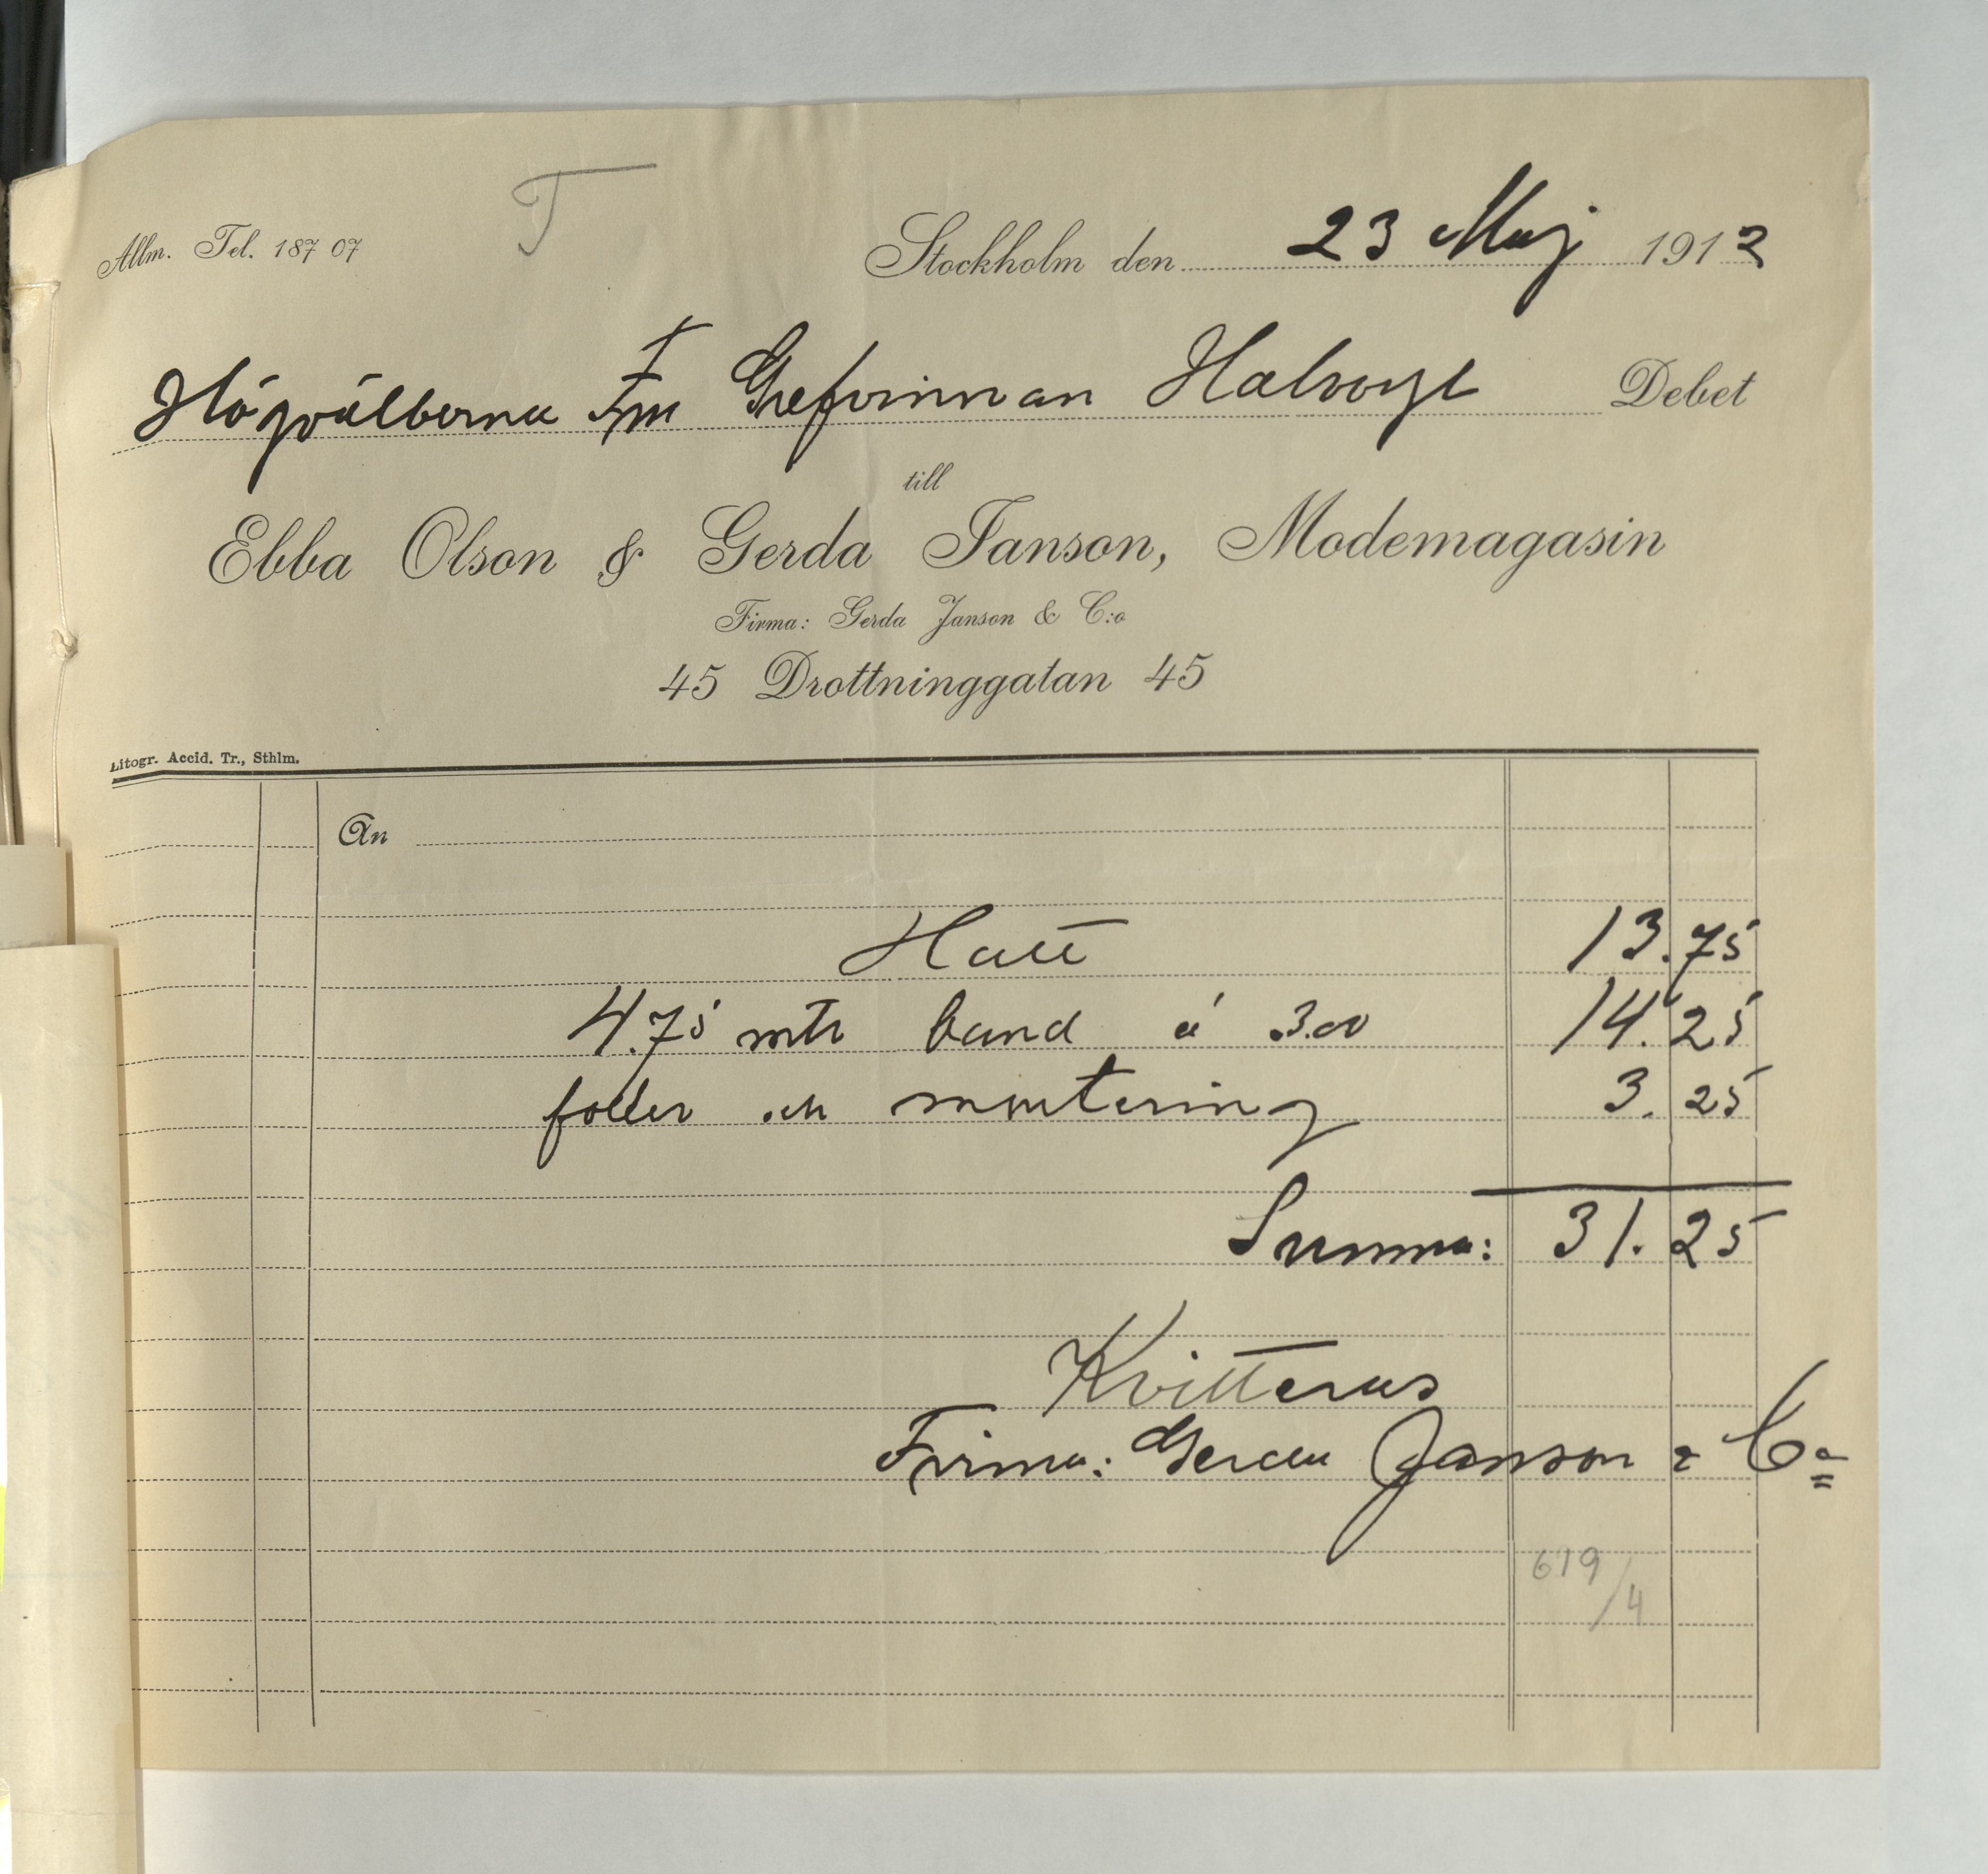 T
Allm. Tel. 187 07
Stockholm den 23 Maj 1912
Högvälborna Fru Grefvinnan Halwyl Debet
till
Ebba Olson & Gerda Janson, Modemagasin
Firma: Gerda Janson & C:o
45 Drottninggatan 45
Litogr. Accid. Tr., Sthlm.
An
Hatt 13.75
4.75 mtr band á 3.00 14.25
foder och montering 3.25
Summa: 31.25
Kvitteras
Firma: Gerda Janson & Co
619/4